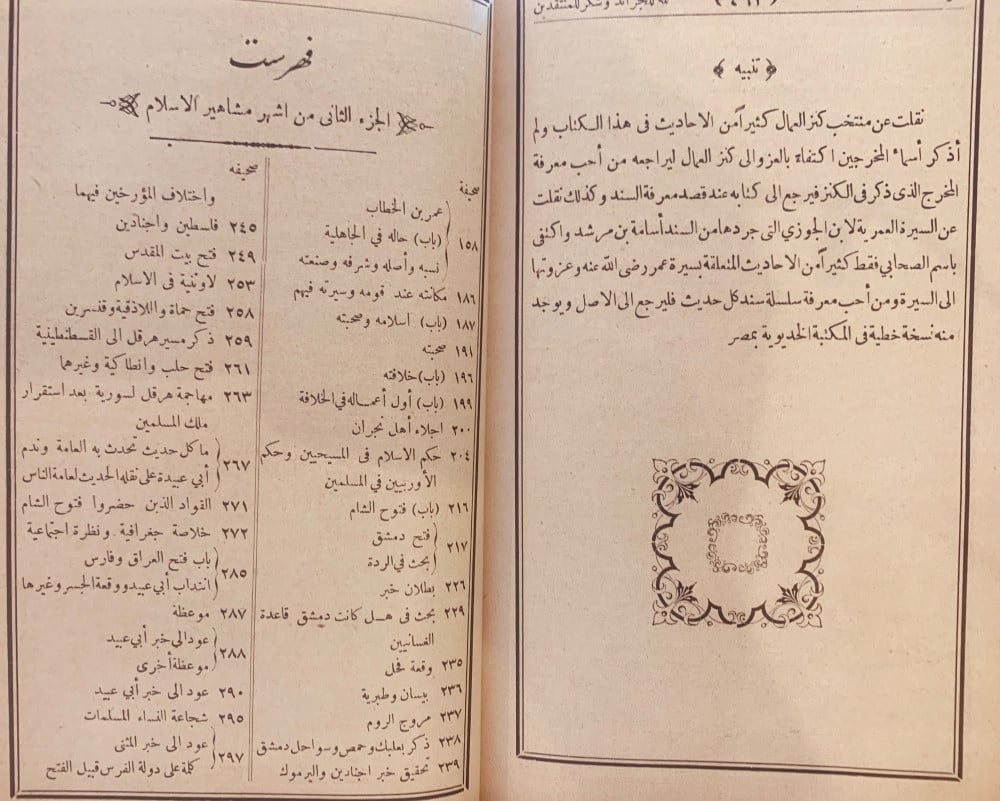 للجرائد وشكر للمنتقدين
﴿ تنبيه ﴾
نقلت عن منتخب كنز العمال كثيراً من الاحاديث فى هذا الكتاب ولم
أذكر أسماء المخرجين اكتفاء بالعزو الى كنز العمال ليراجعه من أحب معرفة
المخرج الذى ذكر فى الكنز فيرجع الى كتابه عند قصد معرفة السند وكذلك نقلت
عن السيرة العمرية لابن الجوزي التى جردها من السند أسامة بن مرشد واكتفى
باسم الصحابي فقط كثيراً من الاحاديث المتعلقة بسيرة عمر رضى الله عنه وعزوتها
الى السيرة ومن أحب معرفة سلسلة سند كل حديث فليرجع الى الاصل ويوجد
منه نسخة خطية فى المكتبة الخديوية بمصر
فهرست
الجزء الثانى من اشهر مشاهير الاسلام
صحيفة
عمر بن الخطاب
١٥٨ (باب) حاله في الجاهلية
نسبه وأصله وشرفه وصنعته
١٨٦ مكانته عند قومه وسيرته فيهم
١٨٧ (باب) اسلامه وصحبته
١٩١ صحبته
١٩٦ (باب) خلافته
١٩٩ (باب) أول أعماله في الخلافة
٢٠٠ اجلاء أهل نجران
٢٠٤ حكم الاسلام فى المسيحيين وحكم
الأوربيين في المسلمين
٢١٦ (باب) فتوح الشام
٢١٧ فتح دمشق
بحث في الردة
٢٢٦ بطلان خبر
٢٢٩ بحث فى هل كانت دمشق قاعدة
الغسانيين
٢٣٥ وقعة فحل
٢٣٦ بيسان وطبرية
٢٣٧ مروج الروم
٢٣٨ ذكر بعلبك وحمص وسواحل دمشق
٢٣٩ تحقيق خبر اجنادين واليرموك
صحيفه
واختلاف المؤرخين فيهما
٢٤٥ فلسطين واجنادين
٢٤٩ فتح بيت المقدس
٢٥٣ لاوثنية فى الاسلام
٢٥٨ فتح حماة واللاذقية وقنسرين
٢٥٩ ذكر مسير هرقل الى القسطنطينية
٢٦١ فتح حلب وانطاكية وغيرها
٢٦٣ مهاجمة هرقل لسورية بعد استقرار
ملك المسلمين
٢٦٧ ما كل حديث تحدث به العامة وندم
أبي عبيدة على نقله الحديث لعامة الناس
٢٧١ القواد الذين حضروا فتوح الشام
٢٧٢ خلاصة جغرافية ونظرة اجتماعية
٢٨٥ باب فتح العراق وفارس
انتداب أبي عبيد ووقعة الجسر وغيرها
٢٨٧ موعظة
٢٨٨ عود الى خبر أبي عبيد
موعظة أخرى
٢٩٠ عود الى خبر أبي عبيد
٢٩٥ شجاعة النساء المسلمات
٢٩٧ عود الى خبر المثنى
كلمة على دولة الفرس قبيل الفتح